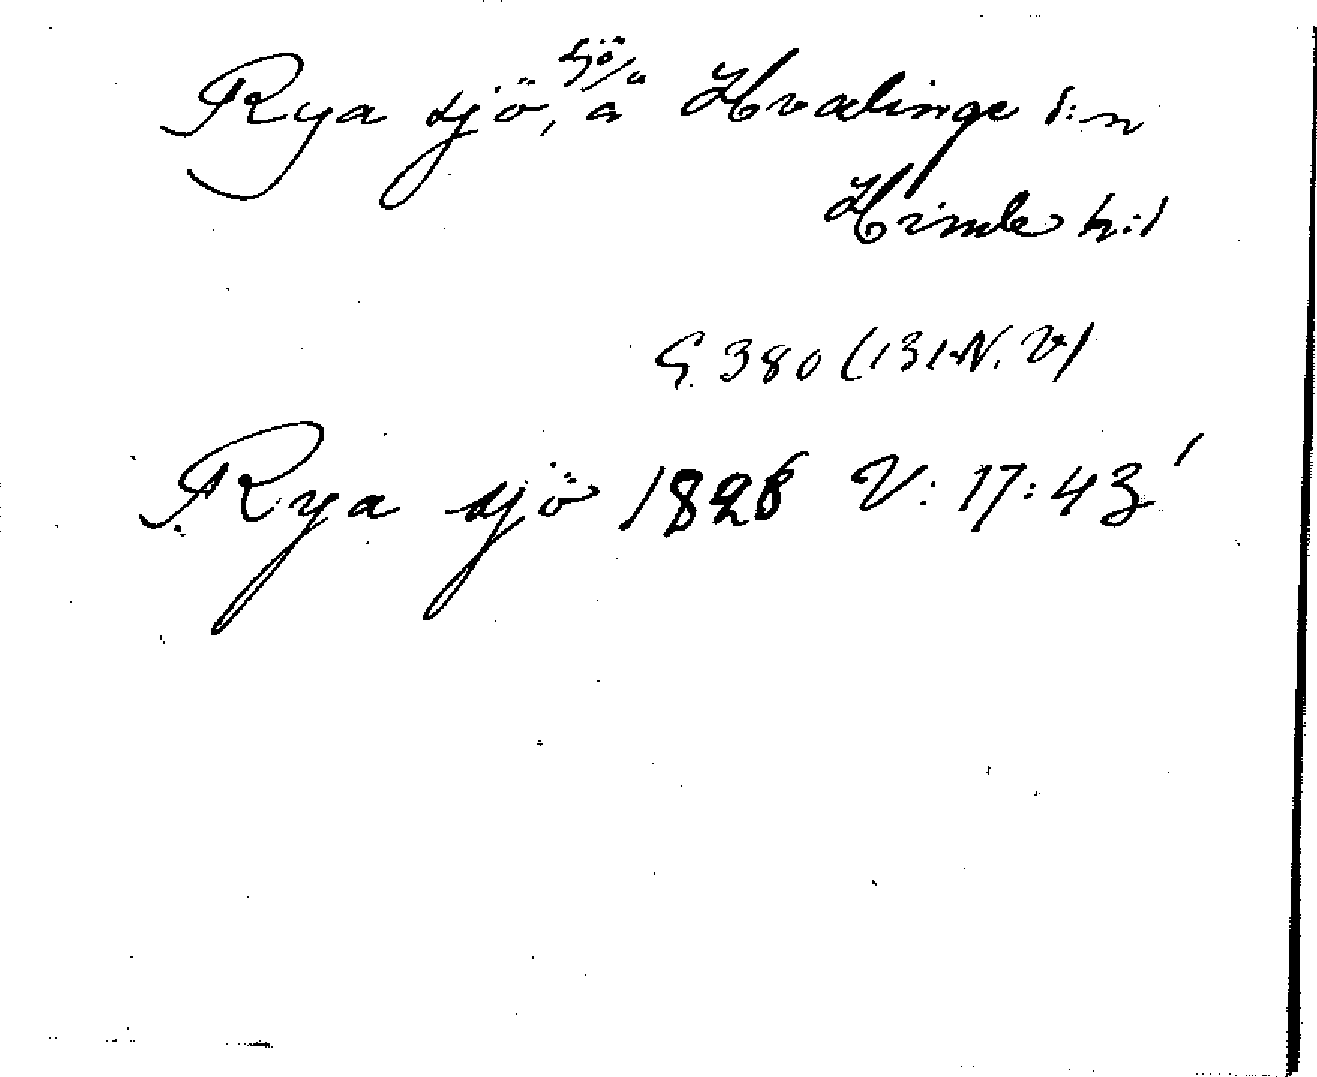 Rya sjö, sjö/å Hvalinge s:n
Himle h:d
G. 380 (131 N. V)
Rya sjö 1826 V: 17: 43